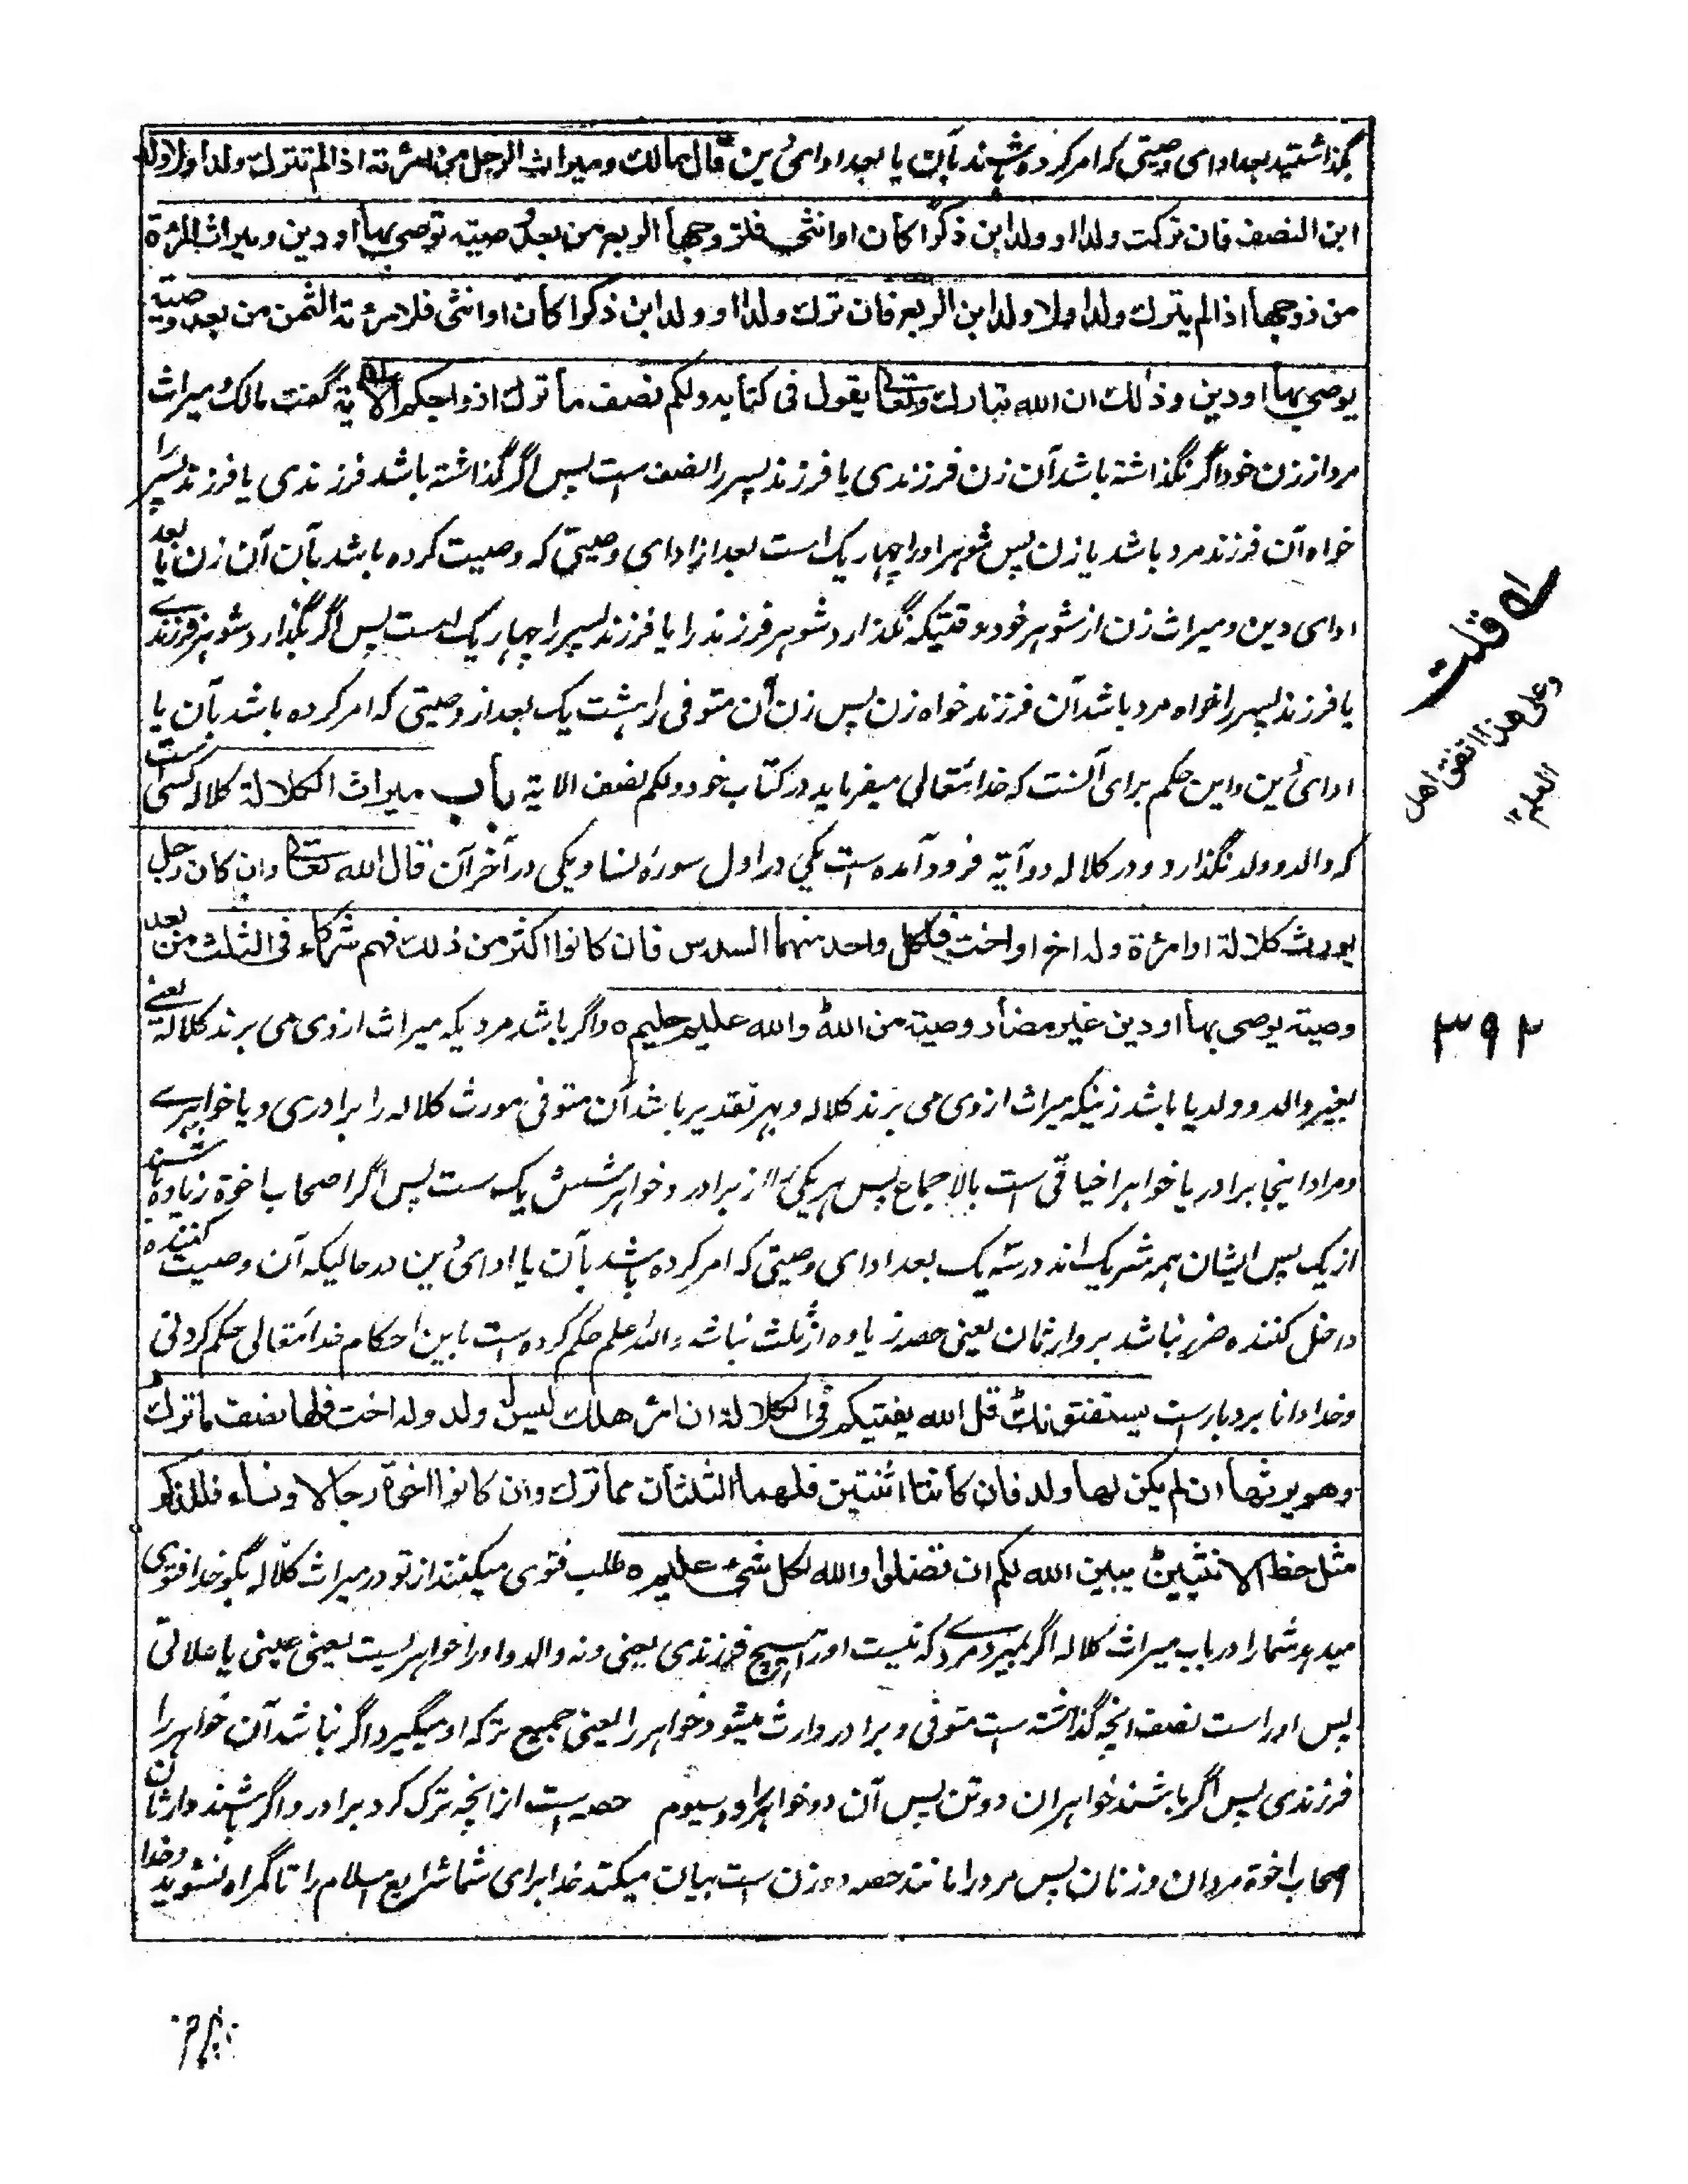 بگذاشتید بعد ادای وصیتی که امر کرده شوند بآن یا بعد ادائ دین قال مالک و میراث الرجل من امرئته اذا لم تترك ولدا ولا ولد
ابن النصف فان تركت ولدا او ولد ابن ذكرا كان او انثى فلزوجها الربع من بعد وصیته توصی بها او دین و میراث المرئة
من زوجها اذا لم یترك ولدا ولا ولد ابن الربع فان ترك ولدا او ولد ابن ذكرا كان او انثى فلامرئته الثمن من بعد وصیته
یوصی بها او دین وذلك ان الله تبارك وتعالى یقول فی كتابه ولكم نصف ما ترك ازواجكم الایة گفت مالک میراث
مرد از زن خود اگر نگذاشته باشد آن زن فرزندی یا فرزند پسر را نصف ست پس اگر گذاشته باشد فرزندی یا فرزند پسر را
خواه آن فرزند مرد باشد یا زن پس شوهر او را چهار یک است بعد از ادای وصیتی که وصیت کرده باشد بآن آن زن یا بعد
ادای دین و میراث زن از شوهر خود وقتیکه نگذارد شوهر فرزند را یا فرزند پسر را چهار یک است پس اگر بگذارد شوهر فرزندے
یا فرزند پسر را خواه مرد باشد آن فرزند خواه زن پس زن آن متوفی را هشت یک بعد از وصیتی که امر کرده باشد بآن یا
ادائ دین و این حکم برای آنست که خدائتعالی میفرماید در کتاب خود و لکم نصف الایة باب میراث الكلالة کلاله کسی ست
که والد و ولد نگذارد و در کلاله دو آیة فرود آمده است یکی در اول سورۀ نسا و یکی در آخر آن قال الله تعالى وان كان رجل
یورث كلالة او امرئة وله اخ او اخت فلكل واحد منهما السدس فان كانوا اكثر من ذلك فهم شركاء فی الثلث من بعد
وصیته یوصی بها او دین غیر مضار وصیة من الله والله علیم حلیم ه و اگر باشد مردیکه میراث از وی می برند کلاله یعنے
بغیر والد و ولد یا باشد زنیکه میراث از وی می برند کلاله و بهر تقدیر باشد آن متوفی مورث کلاله را برادری و یا خواهرے
و مراد اینجا برادر یا خواهر اخیافی ست بالاجماع پس هر یکی را از برادر و خواهر شش یک ست پس اگر اصحاب اخوة زیاده باشند
از یک پس ایشان همه شریک اند در سه یک بعد ادای وصیتی که امر کرده باشد بآن یا ادائ دین در حالیکه آن وصیت کننده
داخل کننده ضرر نباشد بر وارثان یعنی حصه زیاده از ثلث نباشد والله اعلم حکم کرده ست باین احکام خدائتعالی حکم کردنی
و خدا دانا بردبارست یستفتونك قل الله یفتیكم فی الكلالة ان امرؤ هلك لیس له ولد وله اخت فلها نصف ما ترك
وهو یرثها ان لم یكن لها ولد فان كانتا اثنتین فلهما الثلثان مما ترك وان كانوا اخوة رجالا ونساء فللذكر
مثل حظ الانثیین یبین الله لكم ان تضلوا والله بكل شیء علیم ه طلب فتوی میکنند از تو در میراث کلاله بگو خدا فتوی
میدهد شما را در باب میراث کلاله اگر بمیرد مردے که نیست او را هیچ فرزندی یعنی و نه والد و او را خواهریست یعنی عینی یا علاتی
پس او راست نصف انچه گذاشته ست متوفی و برادر وارث میشود خواهر را یعنی جمیع ترکه او میگیرد اگر نباشد آن خواهر را
فرزندی پس اگر باشند خواهران دو تن پس آن دو خواهر را دو سیوم حصه است از انچه ترک کرد برادر و اگر باشند وارثان
اصحاب اخوة مردان و زنان پس مرد را مانند حصه دو زن است بیان میکند خدا برای شما شرایع اسلام را تا گمراه نشوید و خدا
له قلت
وعلی هذا اتفق اهل
العلم ١٢
٣٩٢